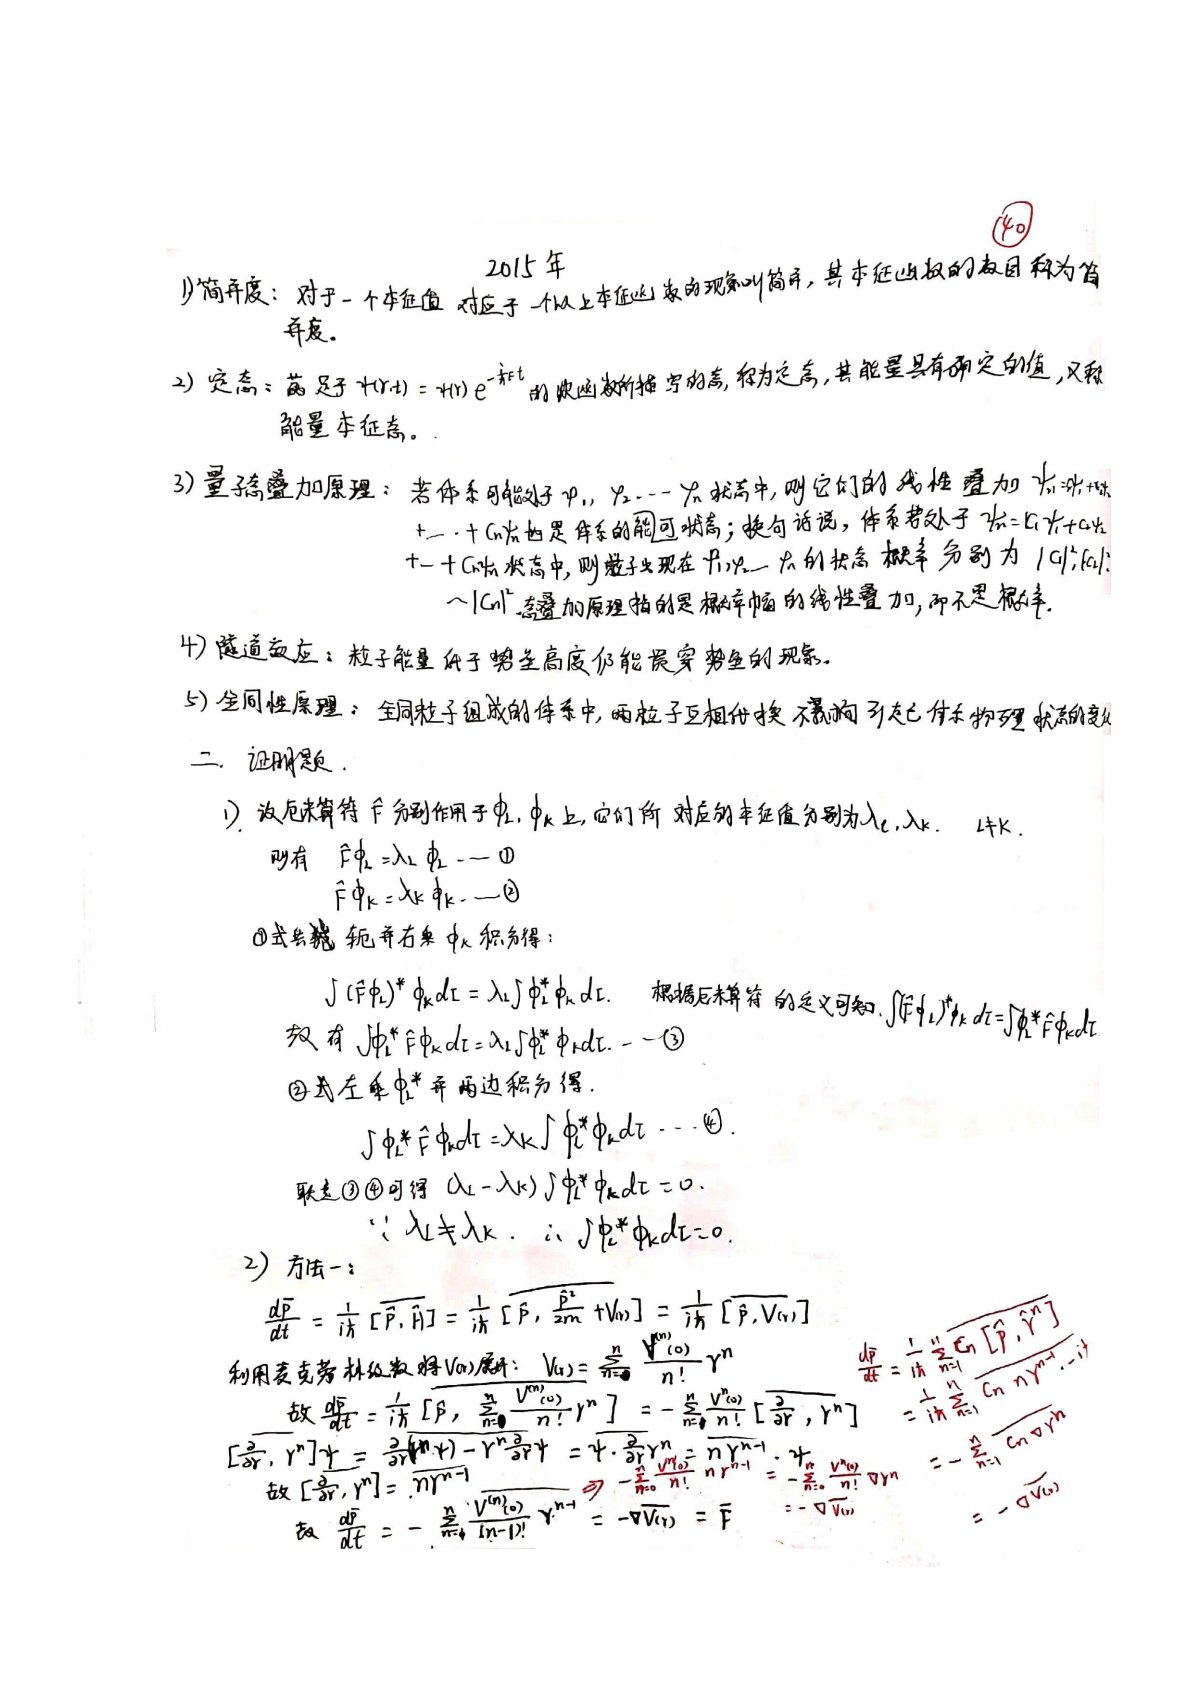 40
2015年
1) 简并度：对于一个本征值 对应于一个以上本征函数的现象叫简并，其本征函数的数目称为简
并度。
2) 定态：满足于 ψ(r,t) = ψ(r) e^{-\frac{i}{ħ}Et} 的波函数所描写的态，称为定态，其能量具有确定的值，又称
能量本征态。
3) 量子态叠加原理：若体系可能处于 ψ₁, ψ₂ --- ψₙ 状态中，则它们的线性叠加
+ --- + Cₙψₙ 也是体系的能可状态；换句话说，体系若处于 ψₙ = C₁ψ₁ + C₂ψ₂
+ -- + Cₙψₙ 状态中，则粒子出现在 ψ₁, ψ₂ -- ψₙ 的状态概率分别为 |C₁|², |C₂|²
~ |Cₙ|² 态叠加原理指的是概率幅的线性叠加，而不是概率.
4) 隧道效应：粒子能量低于势垒高度仍能贯穿势垒的现象。
5) 全同性原理：全同粒子组成的体系中，两粒子互相代换不引起体系物理状态的变化
二. 证明题.
1) 设厄米算符 F̂ 分别作用于 φ_L, φ_K 上，它们所对应的本征值分别为 λ_L, λ_K. L≠K.
则有 F̂φ_L = λ_L φ_L --- ①
F̂φ_K = λ_K φ_K --- ②
①式共轭并右乘 φ_K 积分得：
∫(F̂φ_L)* φ_K dτ = λ_L ∫φ_L* φ_K dτ. 根据厄米算符的定义可知. ∫(F̂φ_L)* φ_K dτ = ∫φ_L* F̂φ_K dτ
故有 ∫φ_L* F̂φ_K dτ = λ_L ∫φ_L* φ_K dτ. --- ③
②式左乘 φ_L* 并两边积分得.
∫φ_L* F̂φ_K dτ = λ_K ∫φ_L* φ_K dτ --- ④.
联立③④可得 (λ_L - λ_K) ∫φ_L* φ_K dτ = 0.
∵ λ_L ≠ λ_K. ∴ ∫φ_L* φ_K dτ = 0.
2) 方法一：
\frac{d\bar{p}}{dt} = \frac{1}{iħ} \overline{[p̂, Ĥ]} = \frac{1}{iħ} \overline{[p̂, \frac{p̂²}{2m} + V(r)]} = \frac{1}{iħ} \overline{[p̂, V(r)]}
利用麦克劳林级数将V(r)展开：V(r) = \sum_{n=0}^{n} \frac{V^{(n)}(0)}{n!} r^n
故 \frac{d\bar{p}}{dt} = \frac{1}{iħ} \overline{[p̂, \sum_{n=0}^{n} \frac{V^{(n)}(0)}{n!} r^n]} = -\sum_{n=0}^{n} \frac{V^{n}(0)}{n!} \overline{[\frac{∂}{∂r}, r^n]}
[\frac{∂}{∂r}, r^n]ψ = \frac{∂}{∂r}(r^nψ) - r^n\frac{∂}{∂r}ψ = ψ·\frac{∂}{∂r}r^n = nr^{n-1}·ψ
故 \overline{[\frac{∂}{∂r}, r^n]} = \overline{nr^{n-1}} ⇒ -\sum_{n=0}^{n} \frac{V^{n}(0)}{n!} \overline{nr^{n-1}} = -\sum_{n=0}^{n} \frac{V^{n}(0)}{n!} \overline{∇r^n}
= -∇\overline{V(r)}
故 \frac{d\bar{p}}{dt} = -\sum_{n=1}^{n} \frac{V^{(n)}(0)}{(n-1)!} \overline{r^{n-1}} = -∇\overline{V(r)} = \bar{F}
\frac{d\bar{p}}{dt} = \frac{1}{iħ} \sum_{n=1}^{n} \overline{C_n [p̂, r̂^n]}
= \frac{1}{iħ} \sum_{n=1}^{n} \overline{C_n n r^{n-1}·-iħ}
= -\sum_{n=1}^{n} \overline{C_n ∇r^n}
= -∇\overline{V(r)}